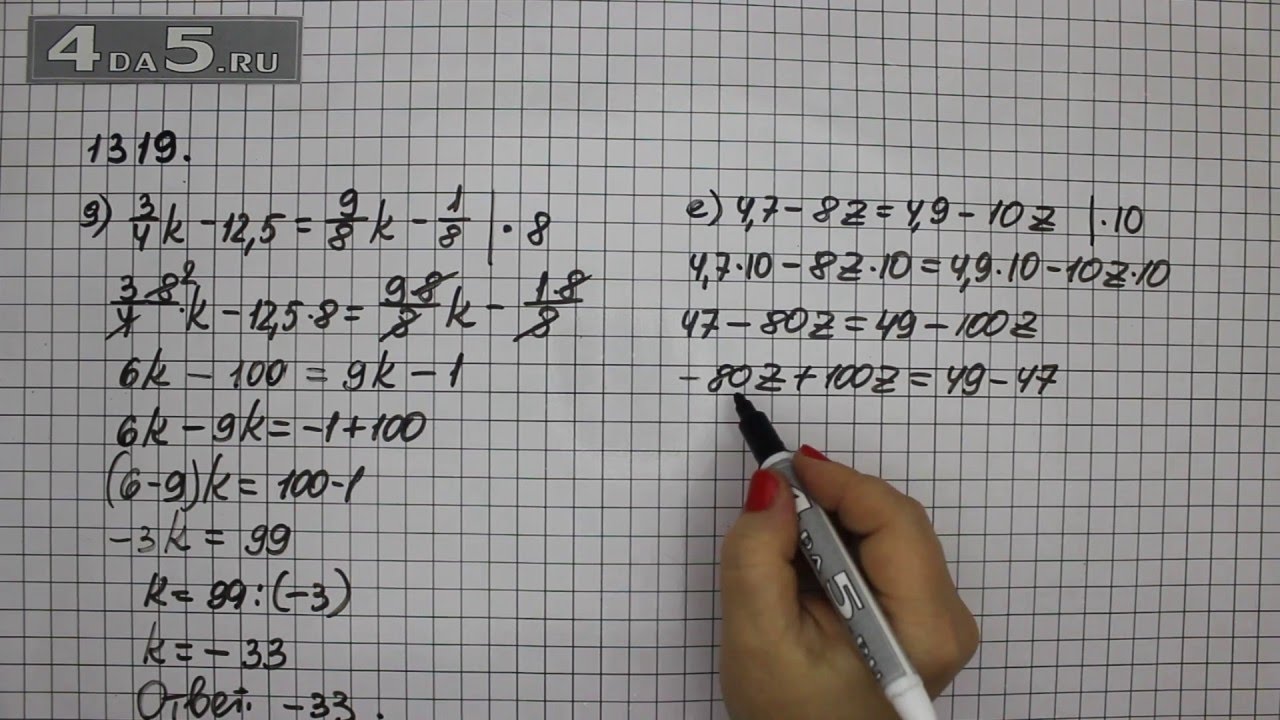 4DA5.RU
1319.
д) 3/4 k - 12,5 = 9/8 k - 1/8 | · 8
3·8²/4 · k - 12,5·8 = 9·8/8 k - 1·8/8
6k - 100 = 9k - 1
6k - 9k = -1 + 100
(6-9)k = 100-1
-3k = 99
k = 99:(-3)
k = - 33
Ответ. -33.
е) 4,7 - 8z = 4,9 - 10z | · 10
4,7·10 - 8z·10 = 4,9·10 - 10z·10
47 - 80z = 49 - 100z
- 80z + 100z = 49 - 47